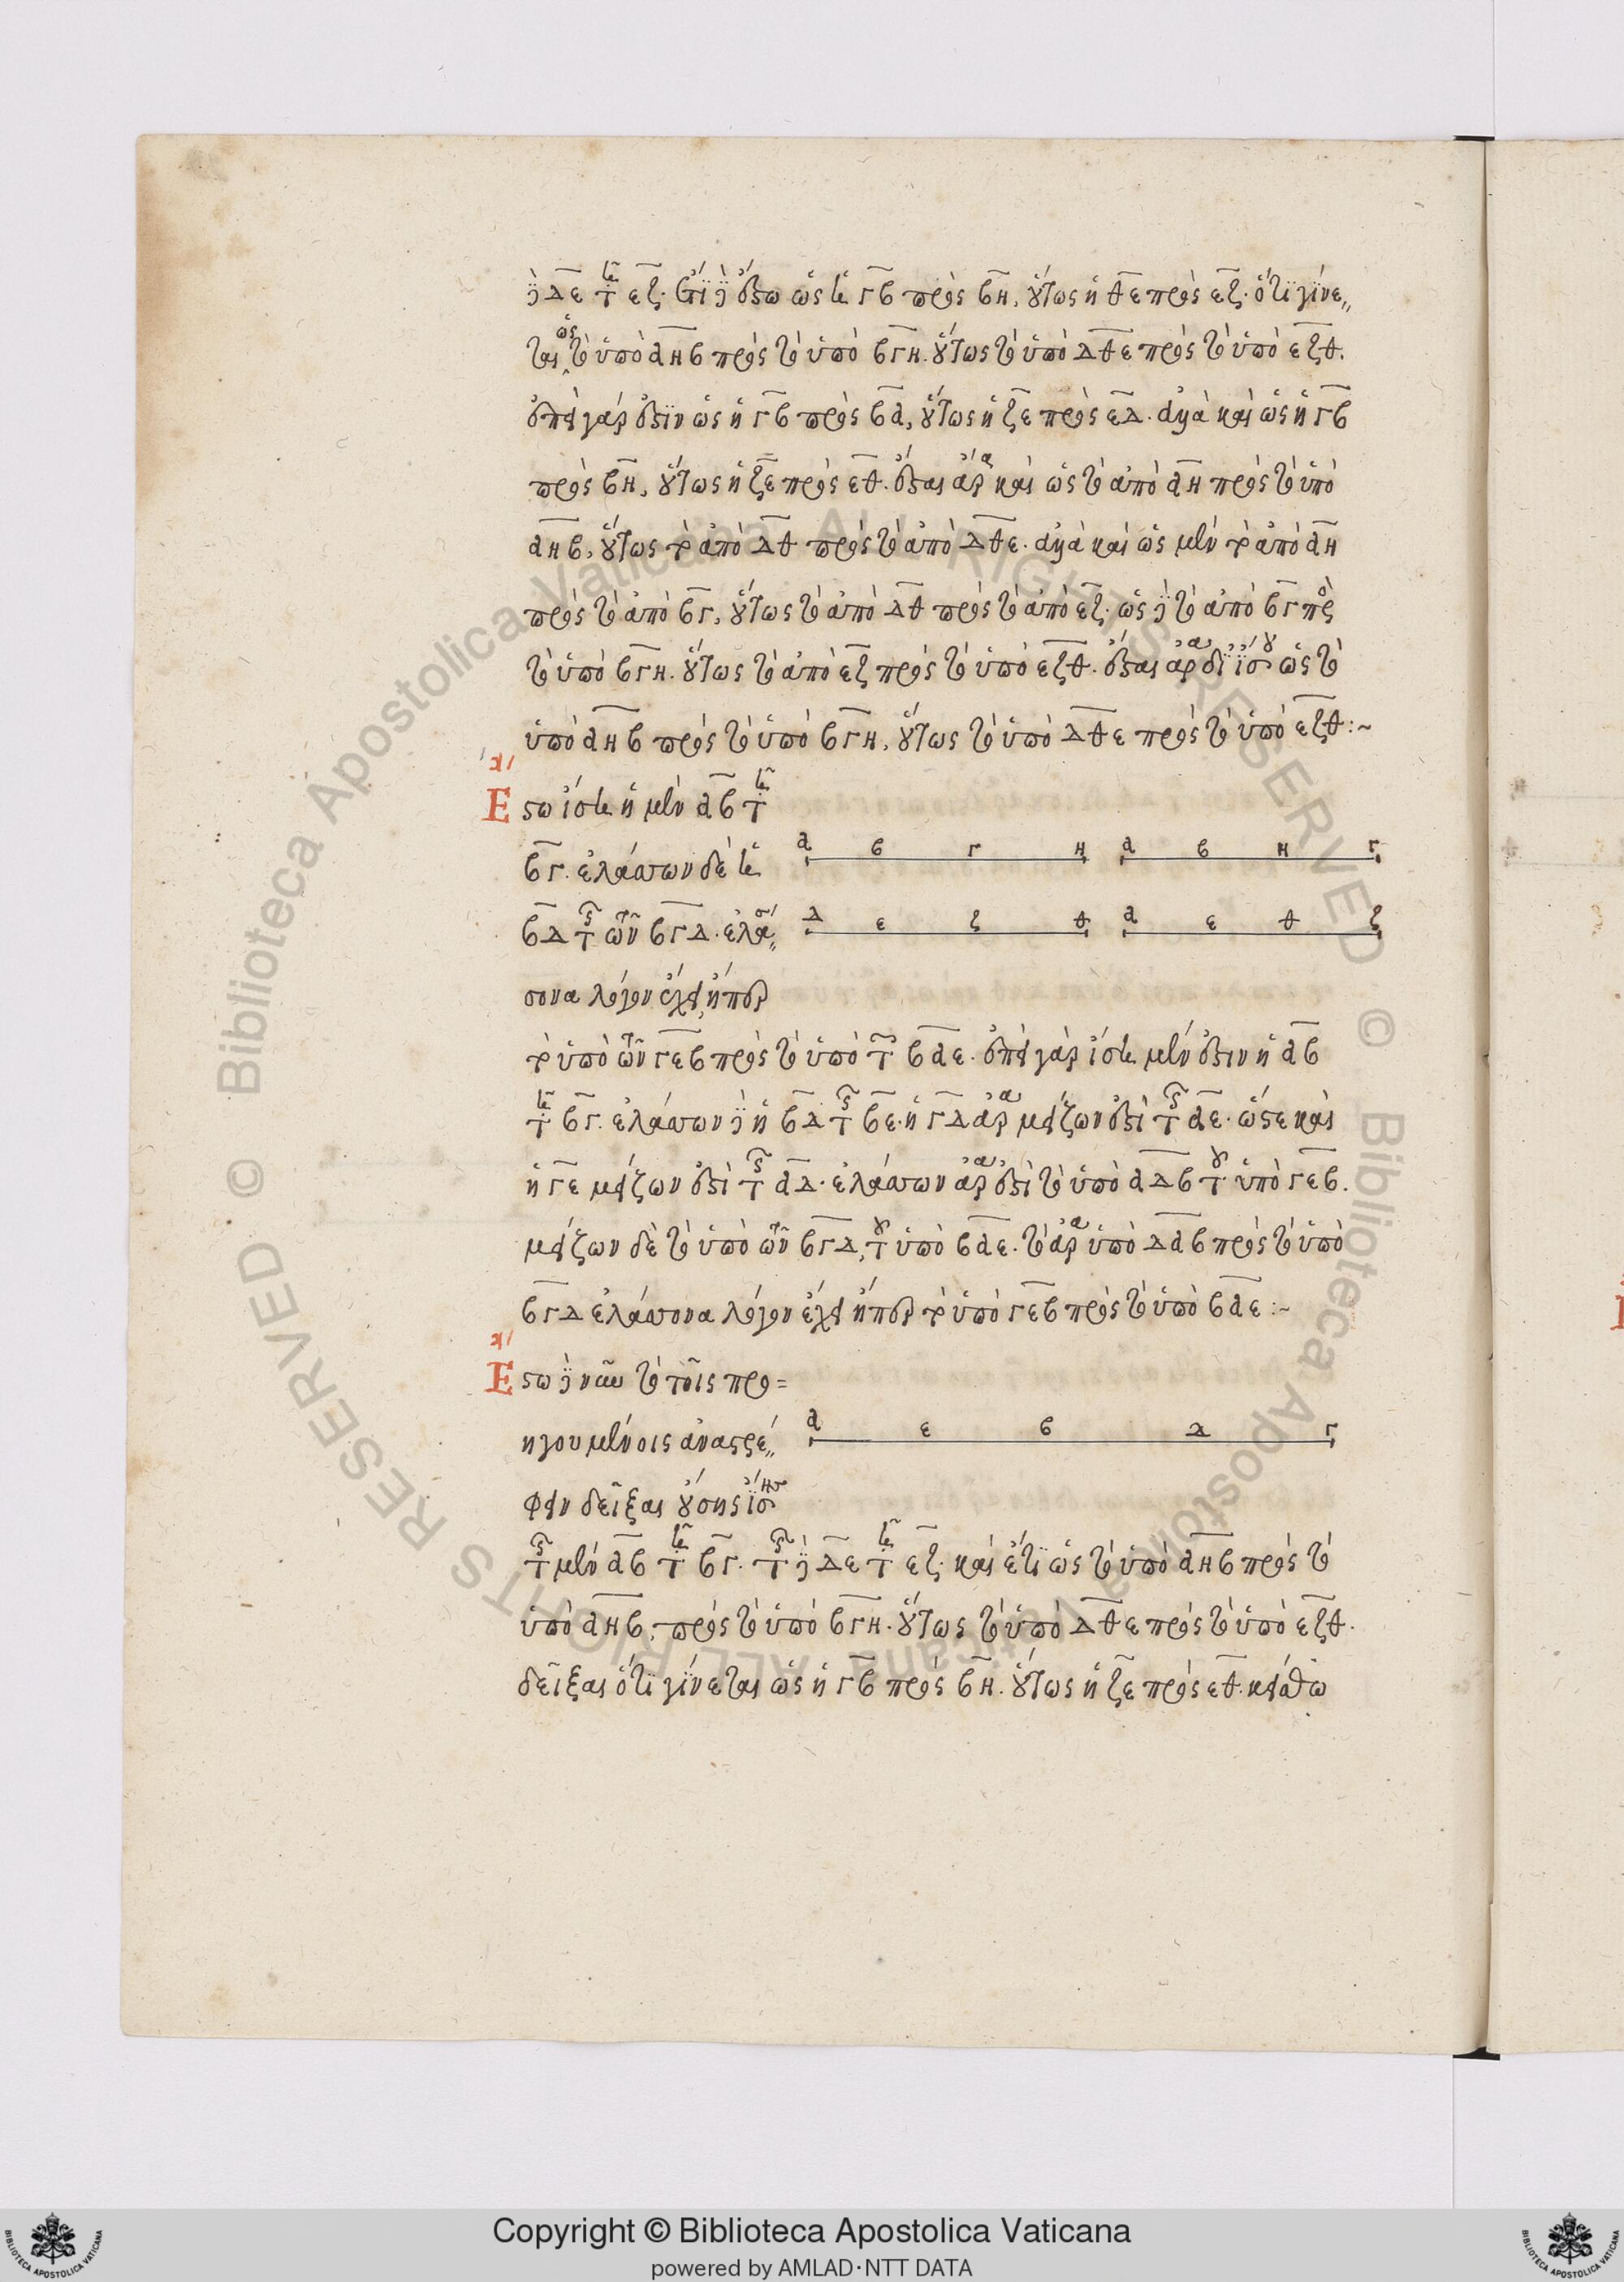 δὲ ΔΕ τῇ ΕΖ. ἔτι δὲ ἔστω ὡς ἡ ΓΒ πρὸς ΒΗ, οὕτως ἡ ΘΕ πρὸς ΕΖ. ὅτι γίνε
ται ὡς τὸ ὑπὸ ΑΗΒ πρὸς τὸ ὑπὸ ΒΓΗ. οὕτως τὸ ὑπὸ ΔΘΕ πρὸς τὸ ὑπὸ ΕΖΘ.
ἐπεὶ γάρ ἐστιν ὡς ἡ ΓΒ πρὸς ΒΑ, οὕτως ἡ ΖΕ πρὸς ΕΔ. ἀλλὰ καὶ ὡς ἡ ΓΒ
πρὸς ΒΗ, οὕτως ἡ ΖΕ πρὸς ΕΘ. ἔσται ἄρα καὶ ὡς τὸ ἀπὸ ΑΗ πρὸς τὸ ὑπὸ
ΑΗΒ, οὕτως τὸ ἀπὸ ΔΘ πρὸς τὸ ἀπὸ ΔΘΕ. ἀλλὰ καὶ ὡς μὲν τὸ ἀπὸ ΑΗ
πρὸς τὸ ἀπὸ ΒΓ, οὕτως τὸ ἀπὸ ΔΘ πρὸς τὸ ἀπὸ ΕΖ. ὡς δὲ τὸ ἀπὸ ΒΓ πρὸς
τὸ ὑπὸ ΒΓΗ. οὕτως τὸ ἀπὸ ΕΖ πρὸς τὸ ὑπὸ ΕΖΘ. ἔσται ἄρα δι ἴσου ὡς τὸ
ὑπὸ ΑΗΒ πρὸς τὸ ὑπὸ ΒΓΗ, οὕτως τὸ ὑπὸ ΔΘΕ πρὸς τὸ ὑπὸ ΕΖΘ :~
Εστω ἴση ἡ μὲν ΑΒ τῇ
ΒΓ. ἐλάσσων δὲ ἡ
Α Β Γ Η Α Β Η Γ
ΒΔ τῆς τῶν ΒΓΔ. ἐλάσ
Δ Ε Ζ Θ Α Ε Θ Ζ
σονα λόγον ἔχει, ἤπερ
τὸ ὑπὸ τῶν ΓΕΒ πρὸς τὸ ὑπὸ τῶν ΒΑΕ. ἐπεὶ γὰρ ἴση μέν ἐστιν ἡ ΑΒ
τῇ ΒΓ. ἐλάσσων δὲ ἡ ΒΔ τῆς ΒΕ. ἡ ΓΔ ἄρα μείζων ἐστὶ τῆς ΑΕ. ὥστε καὶ
ἡ ΓΕ μείζων ἐστὶ τῆς ΑΔ. ἐλάσσων ἄρα ἐστὶ τὸ ὑπὸ ΑΔΒ τοῦ ὑπὸ ΓΕΒ.
μείζων δὲ τὸ ὑπὸ τῶν ΒΓΔ, τοῦ ὑπὸ ΒΑΕ. τὸ ἄρα ὑπὸ ΔΑΒ πρὸς τὸ ὑπὸ
ΒΓΔ ἐλάσσονα λόγον ἔχει ἤπερ τὸ ὑπὸ ΓΕΒ πρὸς τὸ ὑπὸ ΒΑΕ :~
Εστω δὲ νῦν τὸ τοῖς προ
ηγουμένοις ἀναστρέ
Α Ε Β Δ Γ
φειν δεῖξαι οὔσης ἴσης
τῆς μὲν ΑΒ τῇ ΒΓ. τῆς δὲ ΔΕ τῇ ΕΖ. καὶ ἔτι ὡς τὸ ὑπὸ ΑΗΒ πρὸς τὸ
ὑπὸ ΑΗΒ, πρὸς τὸ ὑπὸ ΒΓΗ. οὕτως τὸ ὑπὸ ΔΘΕ πρὸς τὸ ὑπὸ ΕΖΘ.
δεῖξαι ὅτι γίνεται ὡς ἡ ΓΒ πρὸς ΒΗ. οὕτως ἡ ΖΕ πρὸς ΕΘ. κείσθω
Copyright © Biblioteca Apostolica Vaticana
powered by AMLAD·NTT DATA